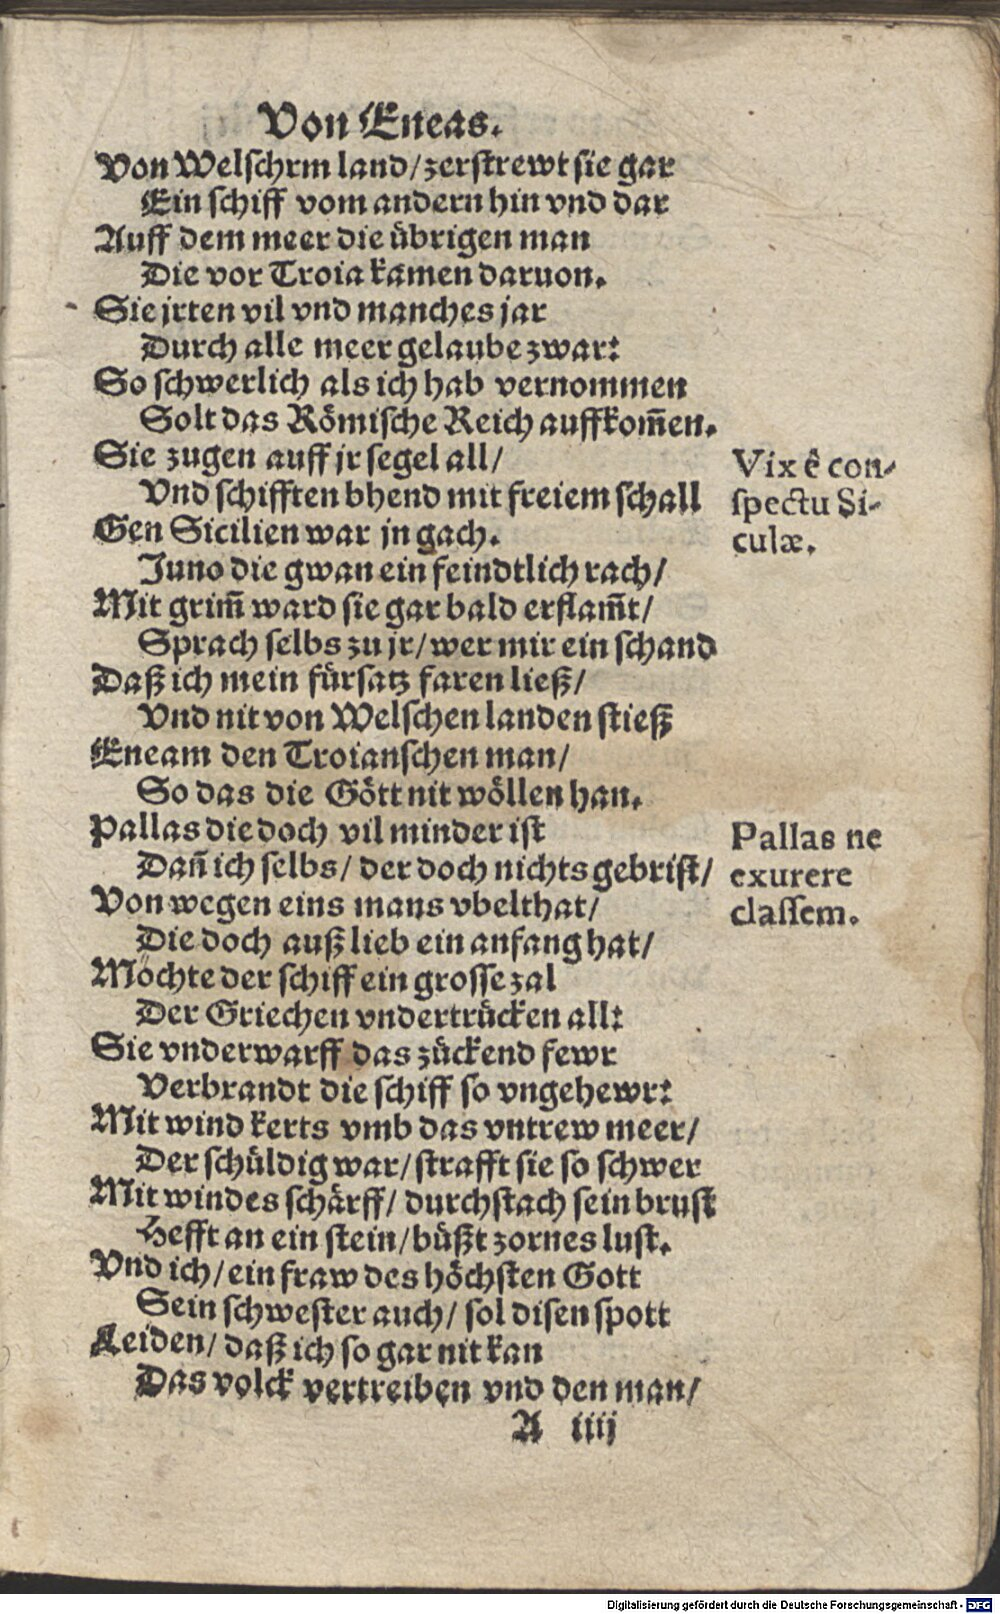 Von Eneas.
Von Welschrm land/ zerstrewt sie gar
Ein schiff vom andern hin vnd dar
Auff dem meer die übrigen man
Die vor Troia kamen daruon.
Sie jrten vil vnd manches jar
Durch alle meer gelaube zwar:
So schwerlich als ich hab vernommen
Solt das Römische Reich auffkom̃en.
Sie zugen auff jr segel all/
Vnd schifften bhend mit freiem schall
Gen Sicilien war jn gach.
Juno die gwan ein feindtlich rach/
Mit grim̃ ward sie gar bald erflam̃t/
Sprach selbs zu jr/ wer mir ein schand
Daß ich mein fürsatz faren ließ/
Vnd nit von Welschen landen stieß
Eneam den Troianschen man/
So das die Gött nit wöllen han.
Pallas die doch vil minder ist
Dañ ich selbs/ der doch nichts gebrist/
Von wegen eins mans vbelthat/
Die doch auß lieb ein anfang hat/
Möchte der schiff ein grosse zal
Der Griechen vndertrücken all:
Sie vnderwarff das zückend fewr
Verbrandt die schiff so vngehewr:
Mit wind kerts vmb das vntrew meer/
Der schüldig war/ strafft sie so schwer
Mit windes schärff/ durchstach sein brust
Hefft an ein stein/ büßt zornes lust.
Vnd ich/ ein fraw des höchsten Gott
Sein schwester auch/ sol disen spott
Leiden/ daß ich so gar nit kan
Das volck vertreiben vnd den man/
A iiij
Vix ê con-
spectu Si-
culæ.
Pallas ne
exurere
classem.
Digitalisierung gefördert durch die Deutsche Forschungsgemeinschaft - DFG